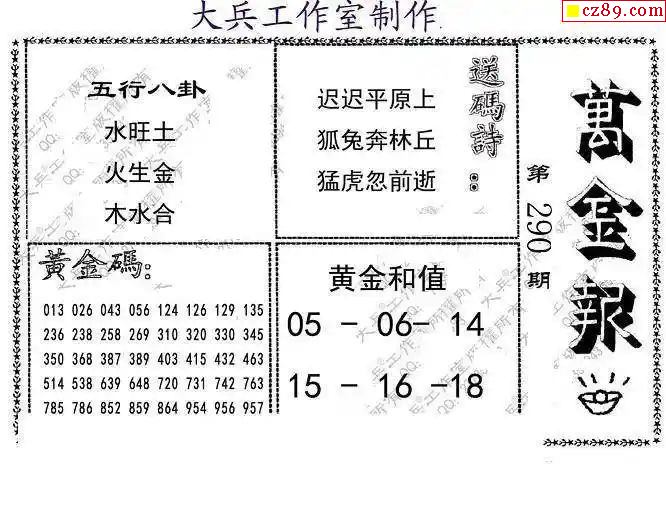 大兵工作室制作.
cz89.com
五行八卦
水旺土
火生金
木水合
送碼詩：
迟迟平原上
狐兔奔林丘
猛虎忽前逝
萬金報
第290期
黃金碼：
013 026 043 056 124 126 129 135
236 238 258 269 310 320 330 345
350 368 387 389 403 415 432 463
514 538 639 648 720 731 742 763
785 786 852 859 864 954 956 957
黄金和值
05 - 06- 14
15 - 16 -18